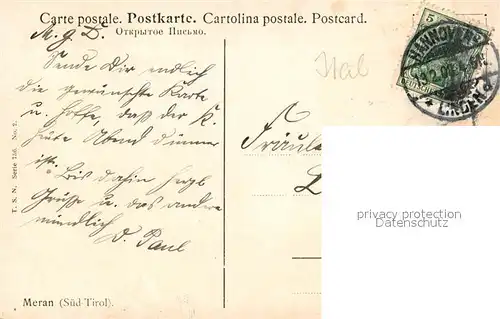 Carte postale. Postkarte. Cartolina postale. Postcard.
Открытое Письмо.
M. g. D.
Sende Dir endlich
die gewünschte Karte
u. hoffe, daß der K.
heute Abend immer
ist.
Bis dahin herzl
Grüße u. das andere
mündlich
D. Paul
Ital
5
HANNOVER
LINDEN
Fräule
privacy protection
Datenschutz
T. S. N. Serie 156. No. 7.
Meran (Süd-Tirol).